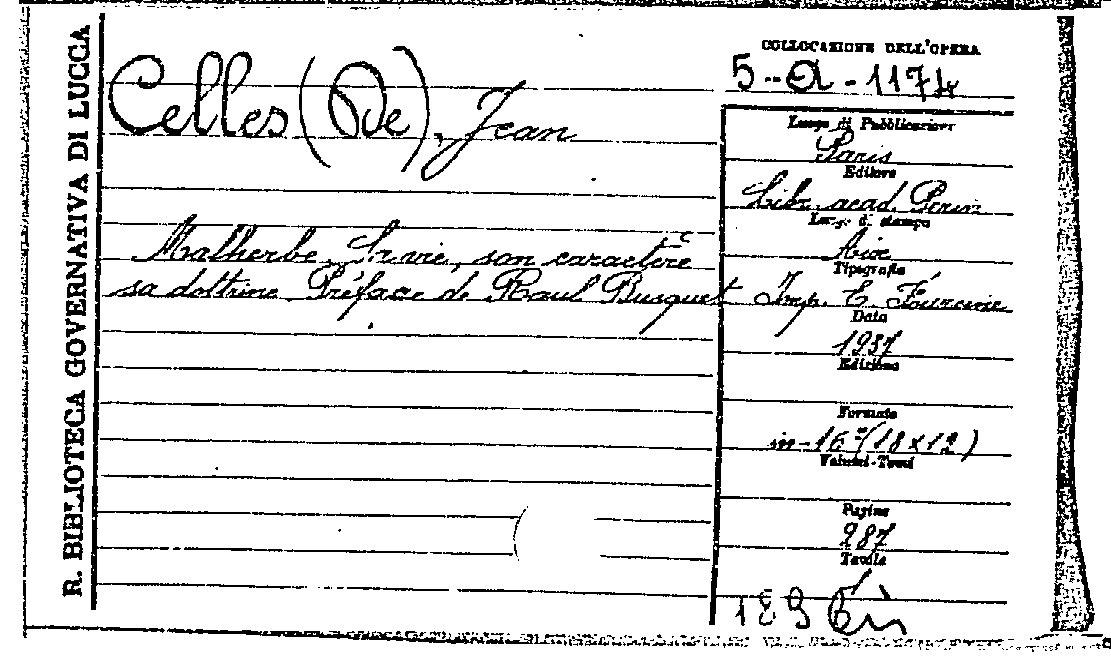 R. BIBLIOTECA GOVERNATIVA DI LUCCA
Celles (De), Jean
Malherbe. Sa vie, son caractère
sa dottrine Préface de Raoul Busquet
COLLOCAZIONE DELL'OPERA
5-a-1174
Luogo di Pubblicazione
Paris
Editore
Libr. acad. Perrin
Luogo di stampa
Aix
Tipografia
Imp. E. Fourcine
Data
1937
Edizione
Formato
in-16° (18x12)
Volumi-Tomi
Pagine
287
Tavole